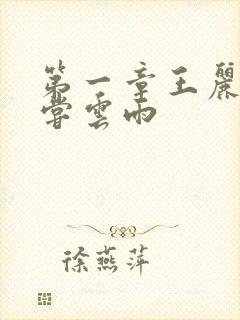 第一章王麗
嘗雲雨
徐燕萍